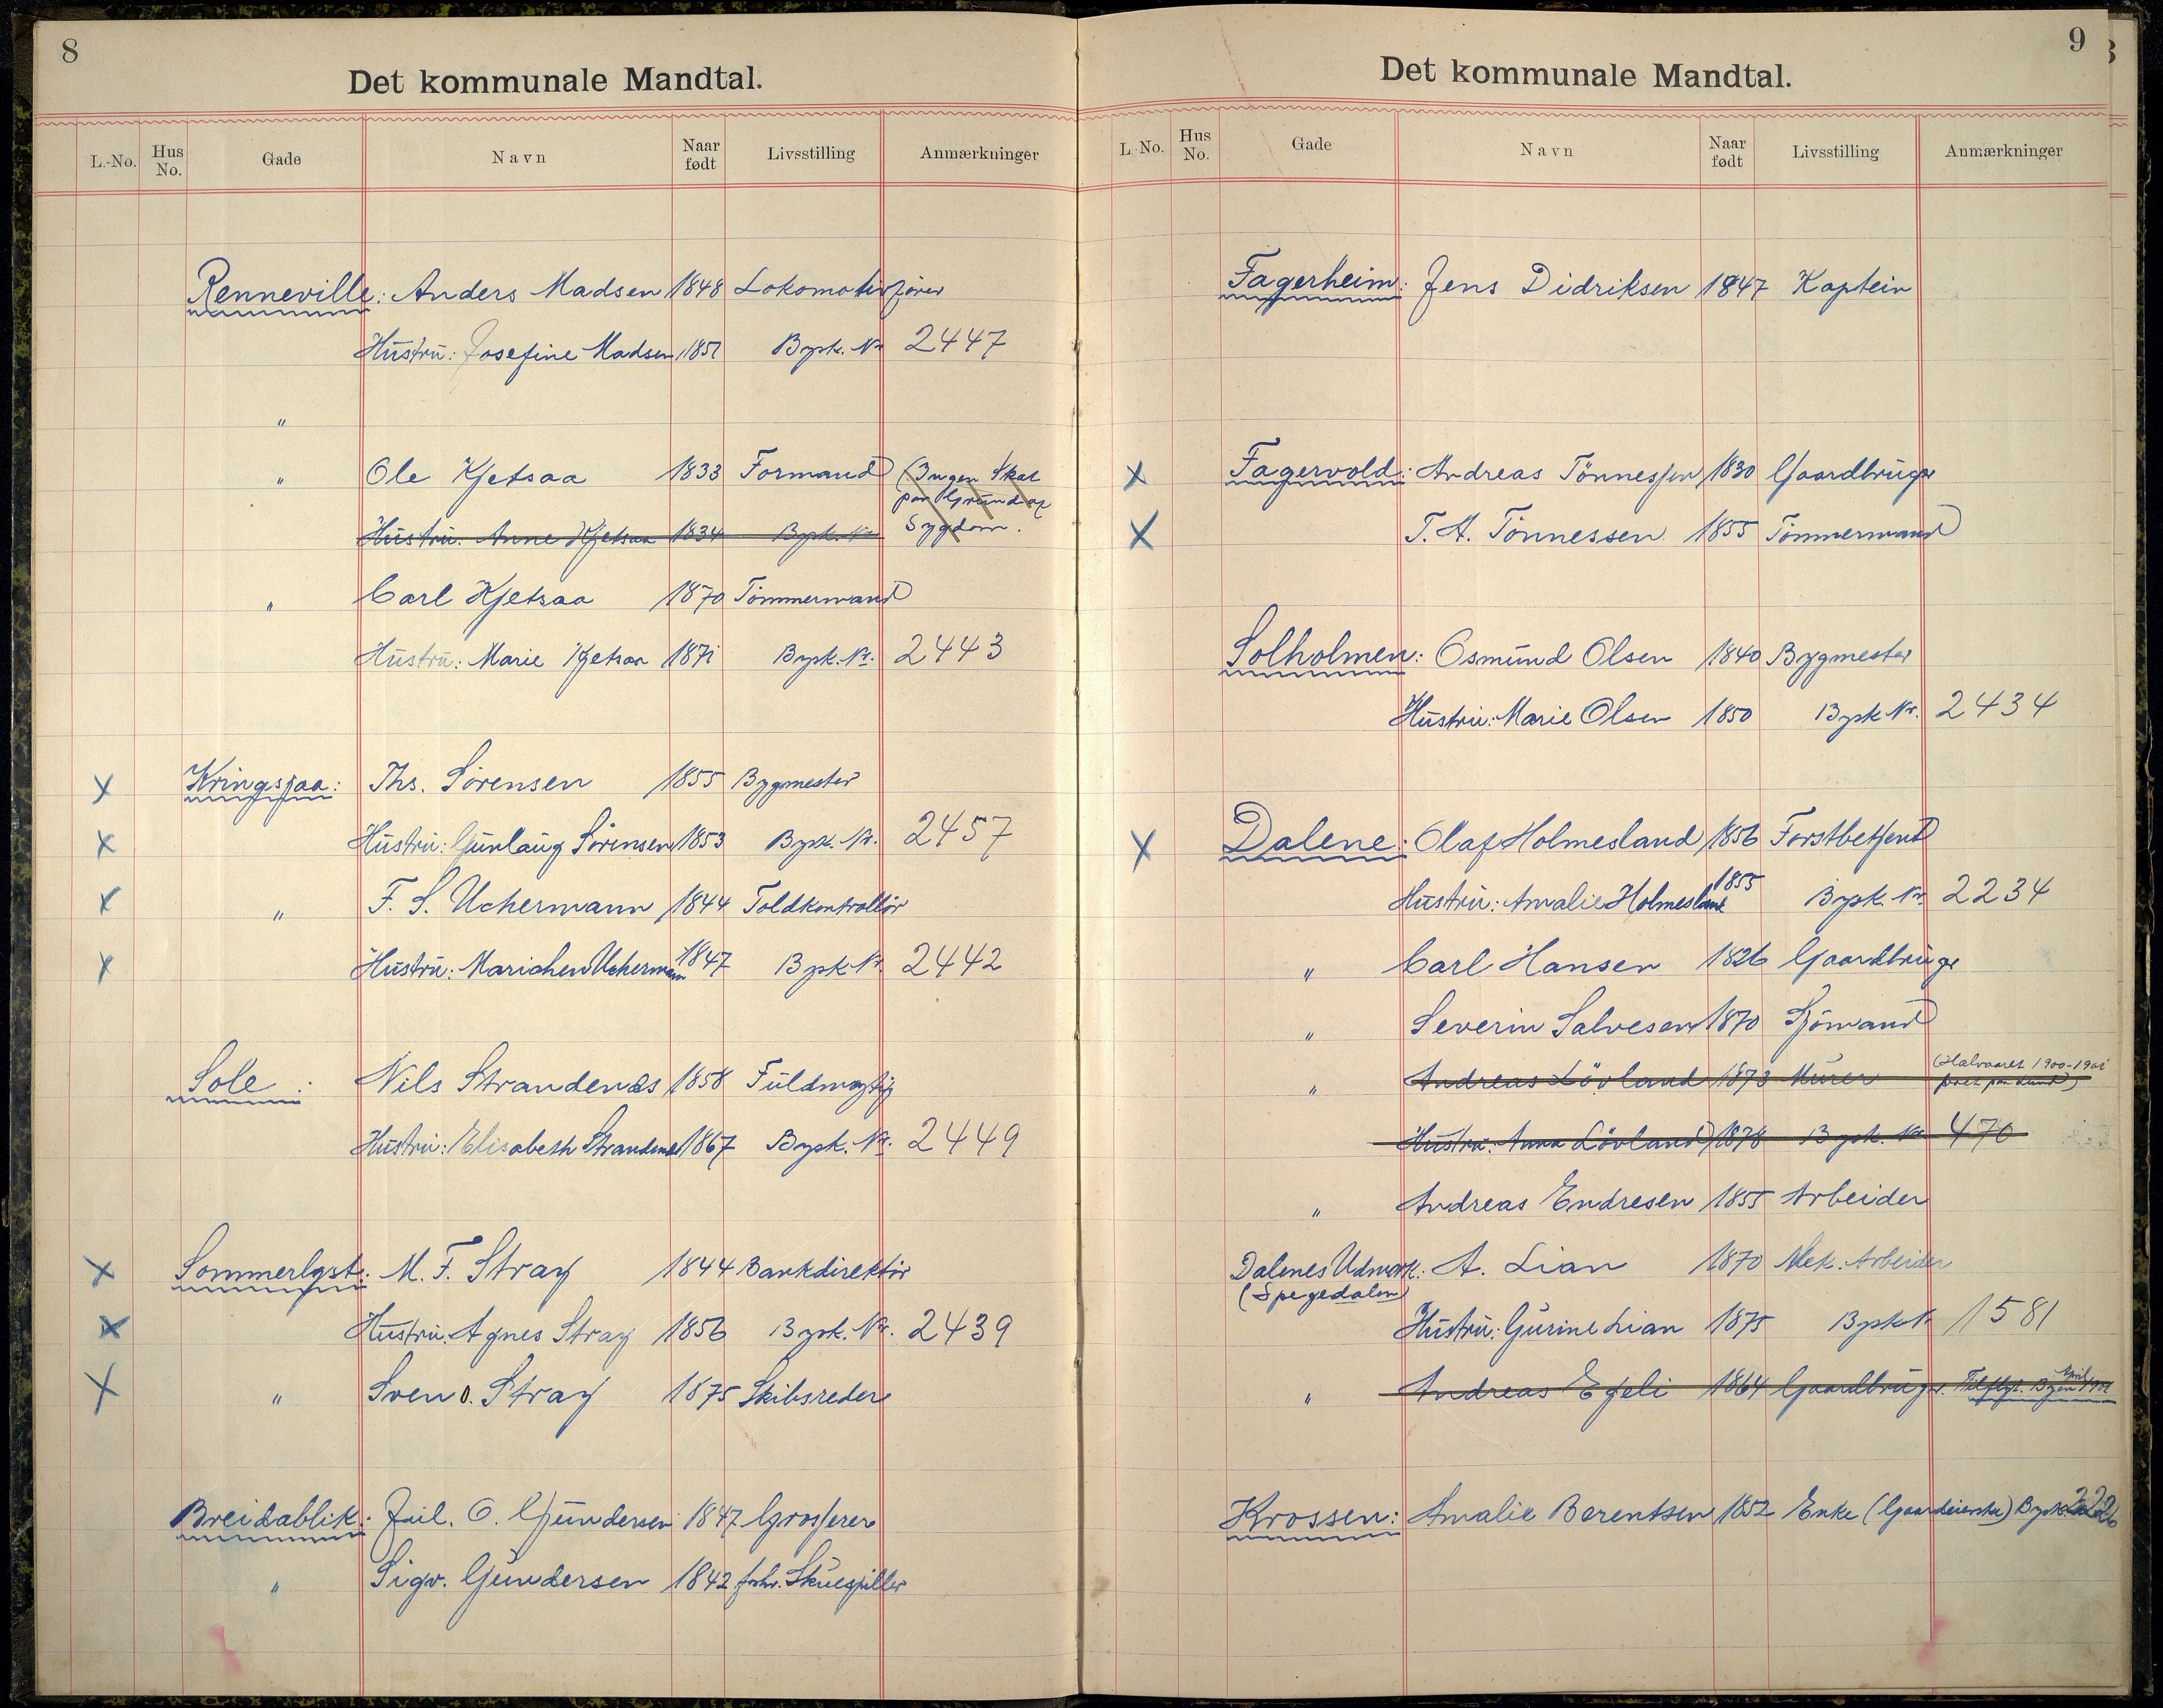 8
Det kommunale Mandtal.
L.-No. Hus No. Gade Navn Naar født Livsstilling Anmærkninger
Renneville: Anders Madsen 1848 Lokomotivfører
Hustru: Josefine Madsen 1851 Bypk. Nr 2447
"
" Ole Kjetsaa 1833 Formand (Ingen Skat
paa Grund af
Hustru: Anne Kjetsaa 1834 Bypk. Nr Sygdom.
" Carl Kjetsaa 1870 Tömmermand
Hustru: Marie Kjetsaa 1871 Bypk. Nr. 2443
x Kringsjaa: Ths. Sörensen 1855 Bygmester
x Hustru: Gunlaug Sörensen 1853 Bypk. Nr. 2457
x " F. S. Uchermann 1844 Toldkontrollör
x Hustru: Marichen Uchermann 1847 Bpk Nr 2442
Sole: Nils Strandenæs 1858 Fuldmægtig
Hustru: Elisabeth Strandenæs 1867 Bypk. Nr. 2449
x Sommerlyst: M. F. Stray 1844 Bankdirektör
x Hustru: Agnes Stray 1856 Bypk. Nr. 2439
x " Sven O. Stray 1875 Skibsreder
Breidablik: O. Gundersen 1847 Grosserer
" Sigv. Gundersen 1842 forhv. Skuespiller
9
Det kommunale Mandtal.
L.-No. Hus No. Gade Navn Naar født Livsstilling Anmærkninger
Fagerheim: Jens Didriksen 1847 Kaptein
x Fagervold: Andreas Tönnessen 1830 Gaardbruger
x T. A. Tönnessen 1855 Tömmermand
Solholmen: Osmund Olsen 1840 Bygmester
Hustru: Marie Olsen 1850 Bypk Nr. 2434
x Dalene: Olaf Holmesland 1856 Forstbetjent
Hustru: Amalie Holmesland 1855 Bypk. Nr. 2234
" Carl Hansen 1826 Gaardbruger
" Severin Salvesen 1870 Sjömand
" Andreas Lövland 1873 Murer (Halvaaret 1900-1901
paa Lund)
Hustru: Anna Lövland 1878 Bypk. Nr 470
" Andreas Endresen 1855 Arbeider
Dalenes Udmark: A. Lian 1870 Mek. Arbeider
(Spegedalen)
Hustru: Gurine Lian 1875 Bpk Nr 1581
" Andreas Egeli 1864 Gaardbruger. Tilflyt. Byen April 1901
Krossen: Amalie Berentsen 1852 Enke (Gaardeierske) Bypk. 2226